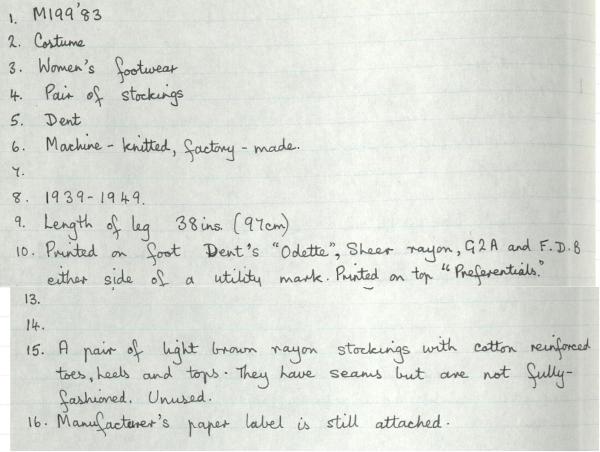 1. M199'83
2. Costume
3. Women's footwear
4. Pair of stockings
5. Dent
6. Machine - knitted, factory - made.
7.
8. 1939-1949.
9. Length of leg 38ins. (97cm)
10. Printed on foot Dent's "Odette", Sheer rayon, G2A and F.D.8
either side of a utility mark. Printed on top "Preferentials."
13.
14.
15. A pair of light brown rayon stockings with cotton reinforced
toes, heels and tops. They have seams but are not fully-
fashioned. Unused.
16. Manufacturer's paper label is still attached.